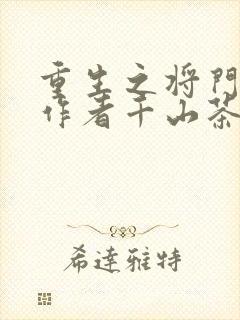 重生之将門
作者千山茶
希達雅特